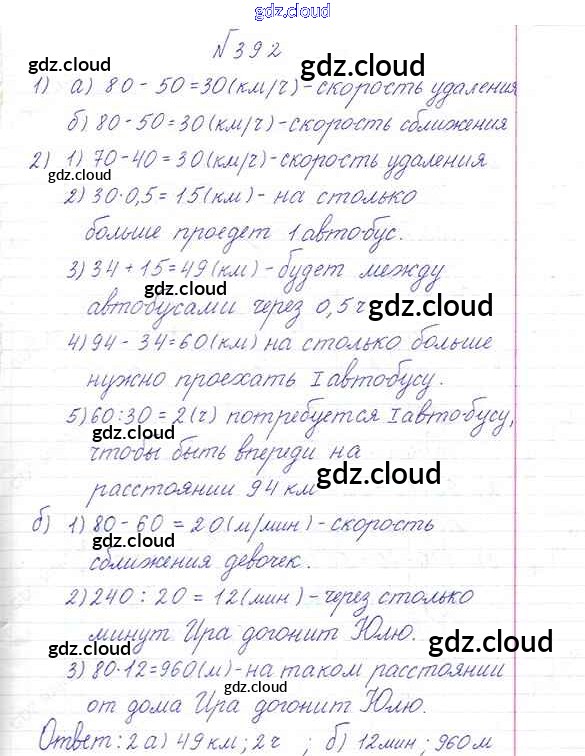 gdz.cloud
№392
gdz.cloud gdz.cloud
1) а) 80 - 50 = 30 (км/ч) - скорость удаления
б) 80 - 50 = 30 (км/ч) - скорость сближения
gdz.cloud gdz.cloud
2) 1) 70 - 40 = 30 (км/ч) - скорость удаления
2) 30·0,5 = 15 (км) - на столько
больше проедет 1 автобус.
3) 34 + 15 = 49 (км) - будет между
gdz.cloud
автобусами через 0,5 ч
gdz.cloud
4) 94 - 34 = 60 (км) на столько больше
нужно проехать I автобусу.
5) 60 : 30 = 2 (ч) потребуется I автобусу,
gdz.cloud
чтобы быть впереди на
gdz.cloud
расстоянии 94 км
б) 1) 80 - 60 = 20 (м/мин) - скорость
gdz.cloud
сближения девочек.
2) 240 : 20 = 12 (мин) - через столько
минут Ира догонит Юлю.
gdz.cloud gdz.cloud
3) 80·12 = 960 (м) - на таком расстоянии
gdz.cloud
от дома Ира догонит Юлю.
Ответ: 2 а) 49 км; 2 ч ; б) 12 мин ; 960 м
gdz.cloud